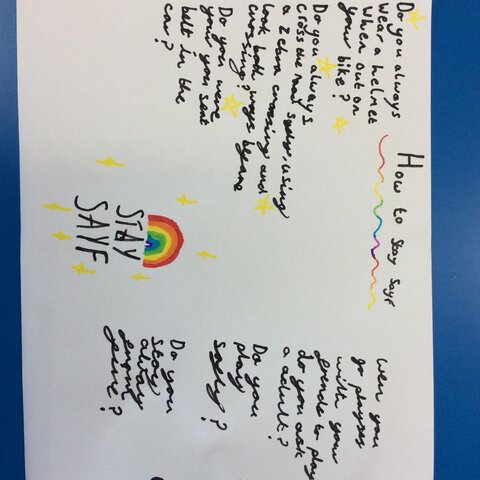 How to stay sayf
Do you always
wear a helmet
when out on
your bike?
Do you always
cross the road safely, using
a zebra crossing and
look both ways before
crossing?
Do you were
your you seat
belt in the
car?
STAY
SAYF
wen you
go playses
with your
to play
do you ask
a adult?
Do you
play
Do you
stay
alway